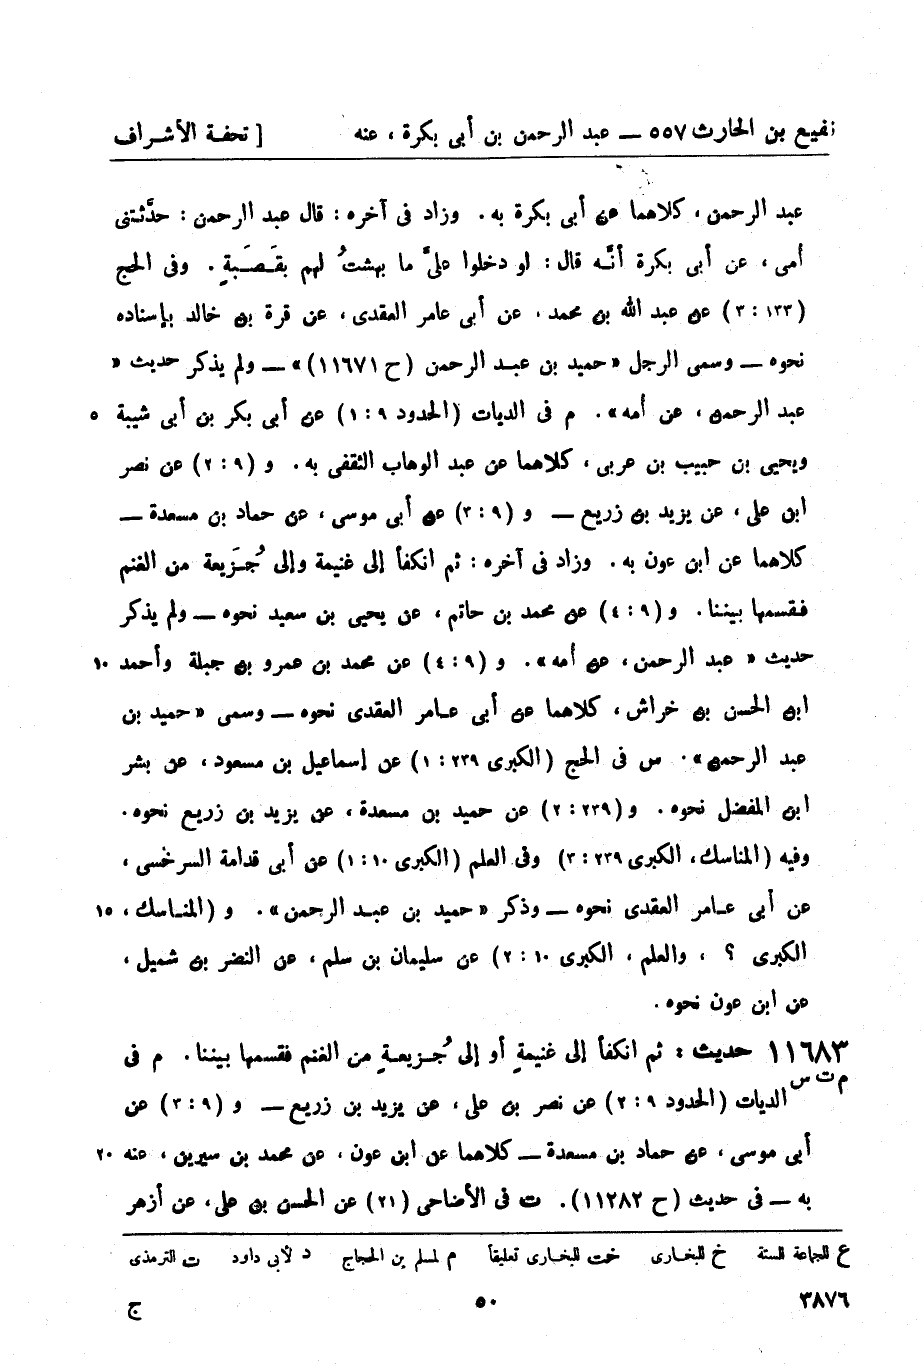 نفيع بن الحارث ٥٥٧ — عبد الرحمن بن أبى بكرة ، عنه [ تحفة الأشراف
عبد الرحمن ، كلاهما عن أبى بكرة به . وزاد فى آخره : قال عبد الرحمن : حدَّثتنى
أمى ، عن أبى بكرة أنَّه قال : لو دخلوا علىَّ ما بهشتُ لهم بقَصَبةٍ . وفى الحج
(١٣٣ : ٣) عن عبد الله بن محمد ، عن أبى عامر العقدى ، عن قرة بن خالد بإسناده
نحوه — وسمى الرجل «حميد بن عبد الرحمن (ح ١١٦٧١)» — ولم يذكر حديث «
عبد الرحمن ، عن أمه» . م فى الديات (الحدود ٩ : ١) عن أبى بكر بن أبى شيبة ٥
ويحيى بن حبيب بن عربى ، كلاهما عن عبد الوهاب الثقفى به . و (٩ : ٢) عن نصر
ابن على ، عن يزيد بن زريع — و (٩ : ٣) عن أبى موسى ، عن حماد بن مسعدة —
كلاهما عن ابن عون به . وزاد فى آخره : ثم انكفأ إلى غنيمة وإلى جُزَيعة من الغنم
فقسمها بيننا . و (٩ : ٤) عن محمد بن حاتم ، عن يحيى بن سعيد نحوه — ولم يذكر
حديث « عبد الرحمن ، عن أمه» . و (٩ : ٤) عن محمد بن عمرو بن جبلة وأحمد ١٠
ابن الحسن بن خراش ، كلاهما عن أبى عامر العقدى نحوه — وسمى «حميد بن
عبد الرحمن» . س فى الحج (الكبرى ٢٣٩ : ١) عن إسماعيل بن مسعود ، عن بشر
ابن المفضل نحوه . و (٢٣٩ : ٢) عن حميد بن مسعدة ، عن يزيد بن زريع نحوه .
وفيه (المناسك ، الكبرى ٢٣٩ : ٣) وفى العلم (الكبرى ١٠ : ١) عن أبى قدامة السرخسى ،
عن أبى عامر العقدى نحوه — وذكر «حميد بن عبد الرحمن» . و (المناسك ، ١٥
الكبرى ؟ ، والعلم ، الكبرى ١٠ : ٢) عن سليمان بن سلم ، عن النضر بن شميل ،
عن ابن عون نحوه .
١١٦٨٣ حديث : ثم انكفأ إلى غنيمةٍ أو إلى جُزيعةٍ من الغنم فقسمها بيننا . م فى
م ت س الديات (الحدود ٩ : ٢) عن نصر بن على ، عن يزيد بن زريع — و (٩ : ٣) عن
أبى موسى ، عن حماد بن مسعدة — كلاهما عن ابن عون ، عن محمد بن سيرين ، عنه ٢٠
به — فى حديث (ح ١١٢٨٢) . ت فى الأضاحى (٢١) عن الحسن بن على ، عن أزهر
ع للجماعة الستة خ للبخارى خت للبخارى تعليقاً م لمسلم بن الحجاج د لأبى داود ت الترمذى
٣٨٧٦ ٥٠ ج